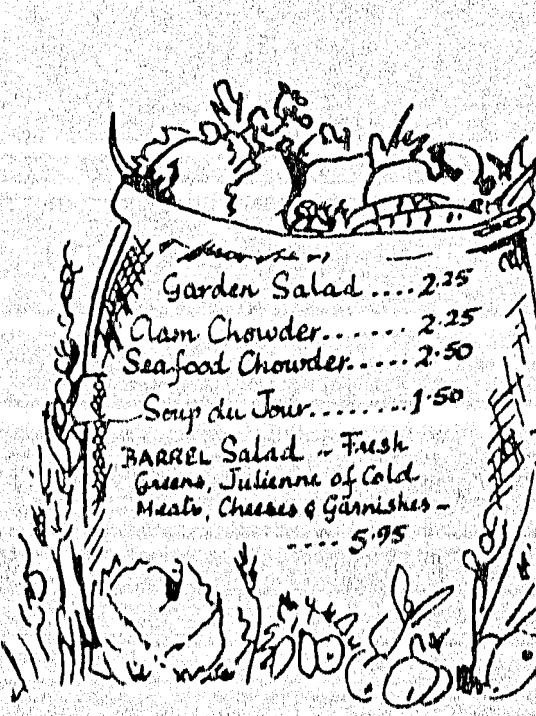 Garden Salad .... 2.25
Clam Chowder....... 2.25
Seafood Chowder..... 2.50
Soup du Jour......... 1.50
BARREL Salad - Fresh
Greens, Julienne of Cold
Meats, Cheeses & Garnishes -
.... 5.95